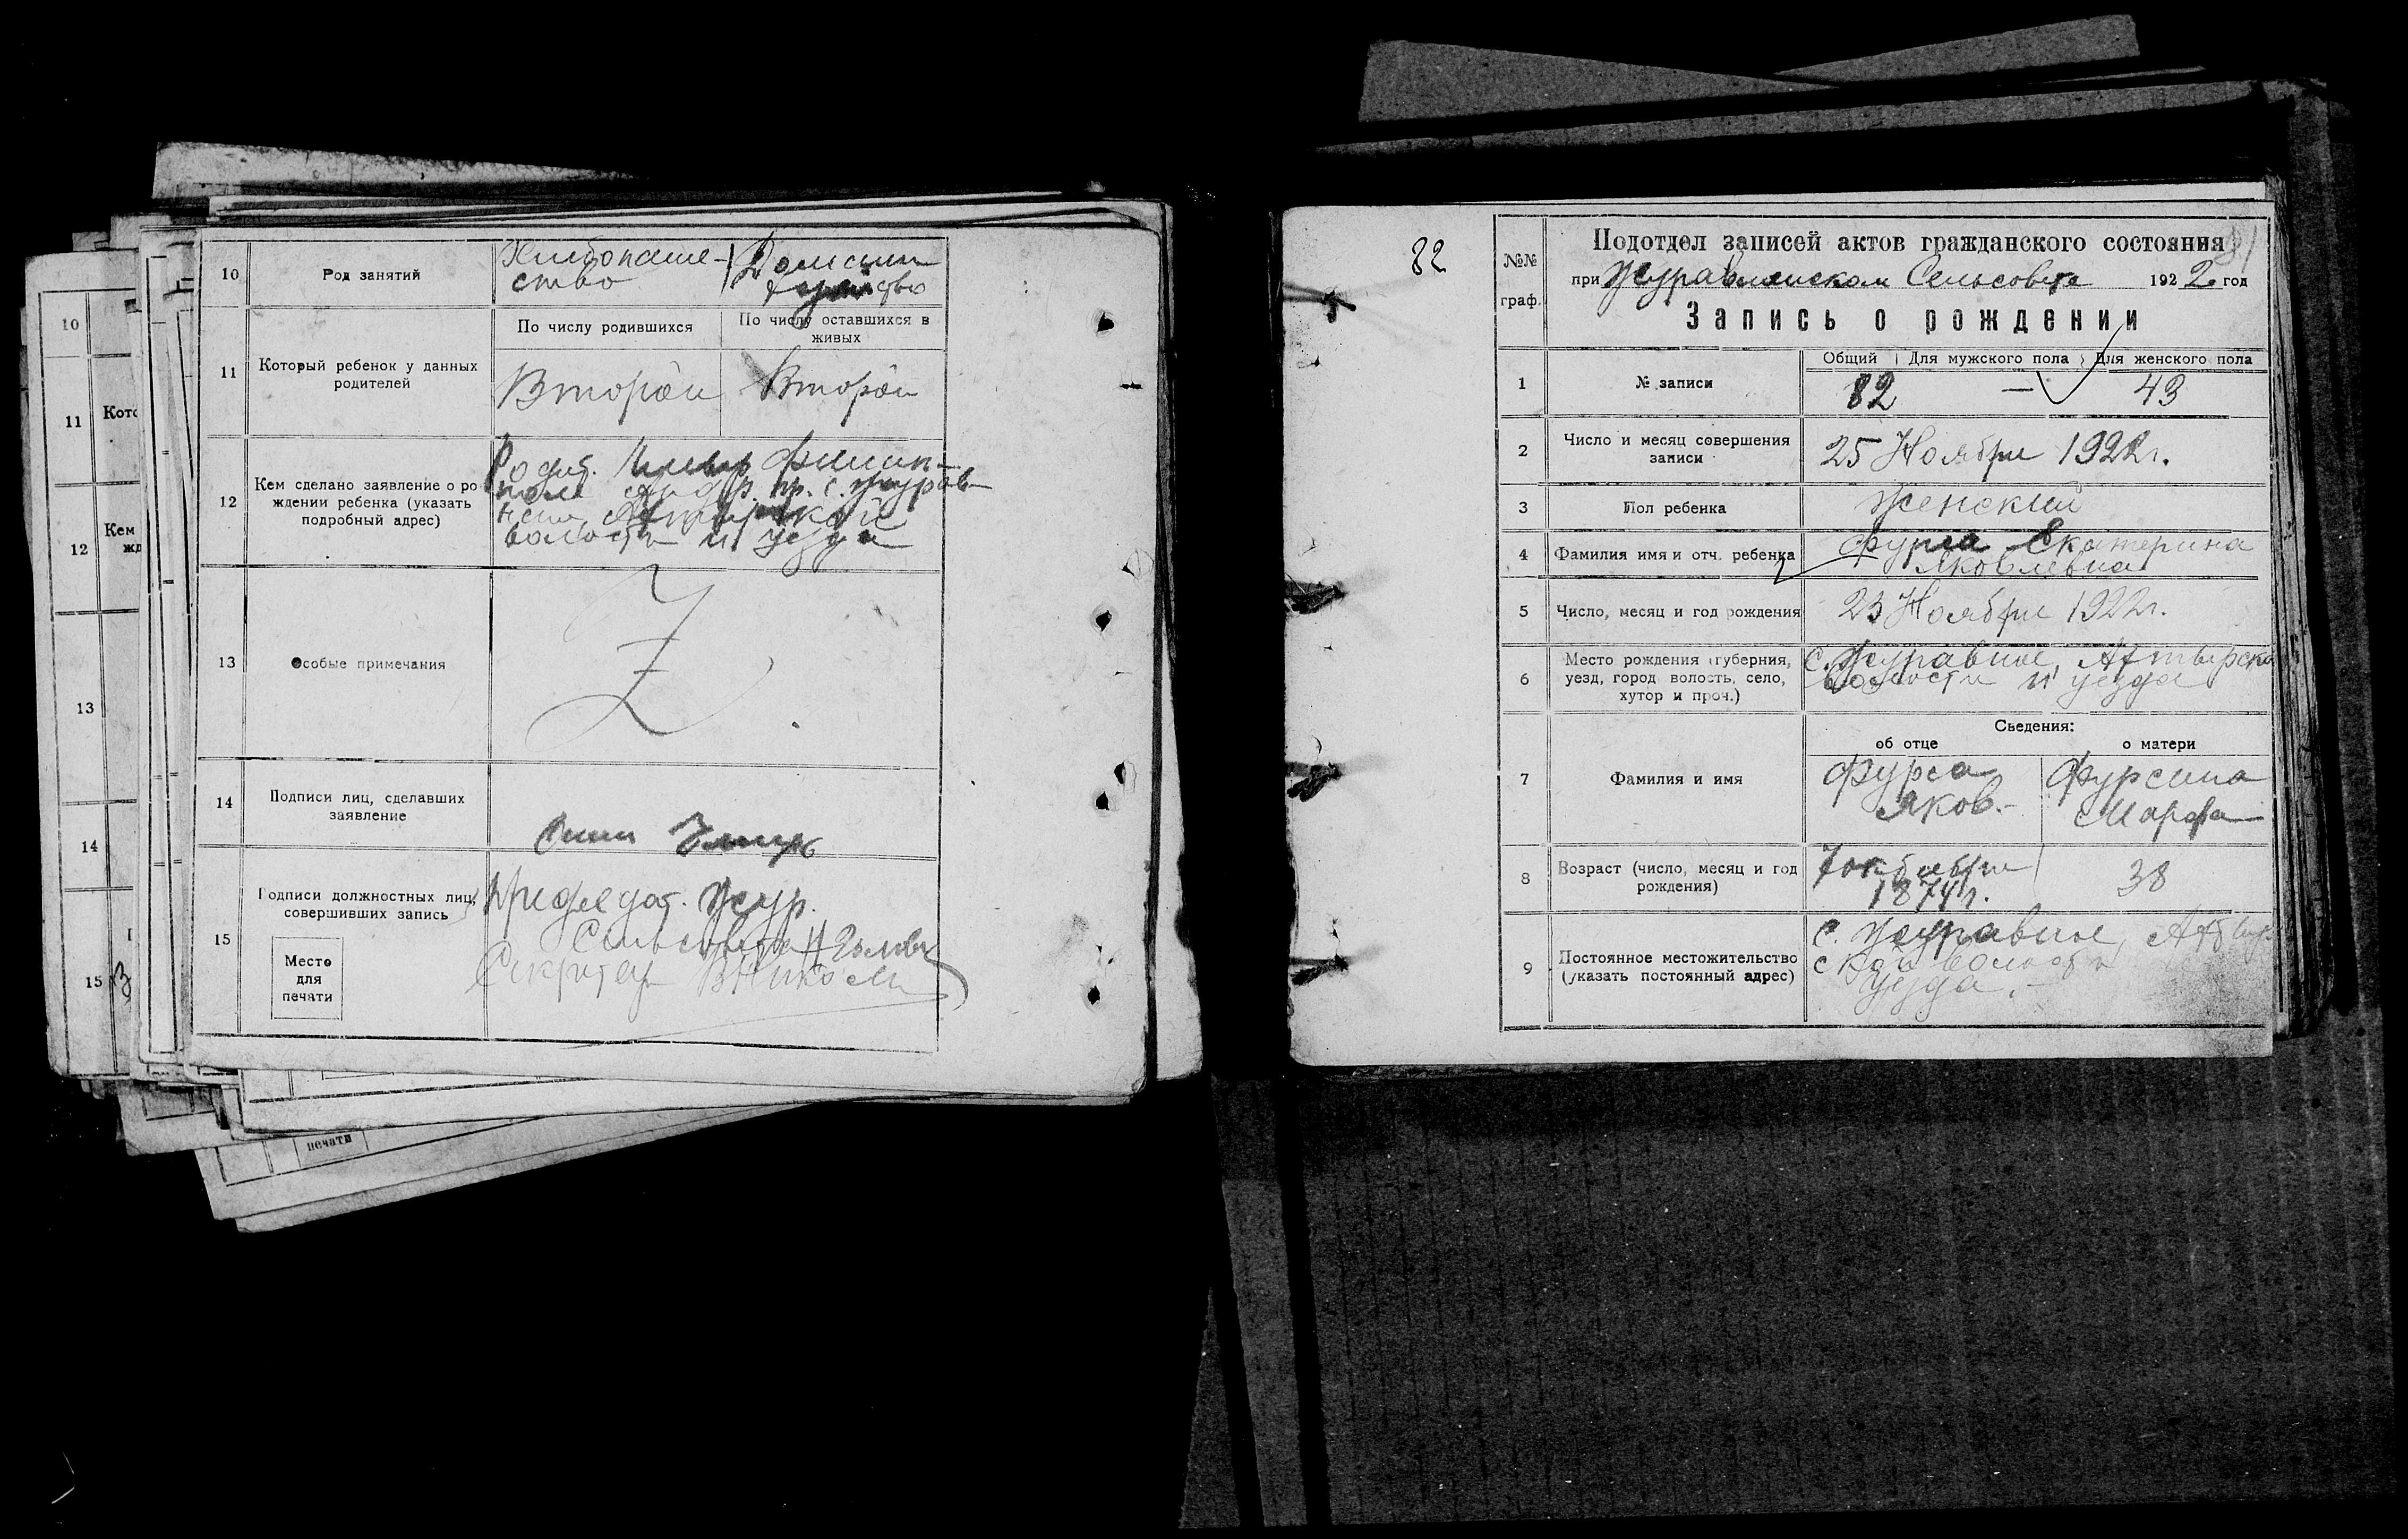 10
Род занятий
Хлебопаше-
ство
11
Который ребенок у данных
родителей
По числу родившихся
По числу оставшихся в
живых
Второй
Второй
12
Кем сделано заявление о ро
ждении ребенка (указать
подробный адрес)
волости и уезда
13
Особые примечания
Z
14
Подписи лиц, сделавших
заявление
15
Подписи должностных лиц,
совершивших запись
Место
для
печати
Председат. Жур.
Сельсовета
Секретарь
10
11
Кото
12
Кем
жд
13
14
15
печати
82
№№
граф.
Подотдел записей актов гражданского состояния
при Журавлянском Сельсовете 1922 год
Запись о рождении
1
№ записи
Общий
Для мужского пола
Для женского пола
82
—
43
2
Число и месяц совершения
записи
25 Ноября 1922 г.
3
Пол ребенка
Женский
4
Фамилия имя и отч. ребенка
Фурса Екатерина
Яковлевна
5
Число, месяц и год рождения
23 Ноября 1922 г.
6
Место рождения (губерния,
уезд, город волость, село,
хутор и проч.)
с. Журавное, Ахтырско
волости и уезда
7
Фамилия и имя
Сведения:
об отце
о матери
Фурса
Яков.-
Фурсина
Марфа
8
Возраст (число, месяц и год
рождения)
1874 г.
38
9
Постоянное местожительство
(указать постоянный адрес)
с. Журавное, Ахтыр-
ской волости
уезда.-